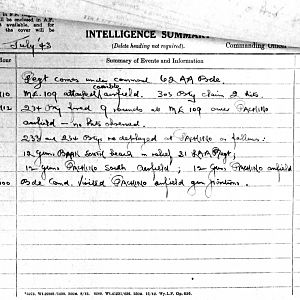 INTELLIGENCE SUMMAR
July 43
(Delete heading not required).
Commanding Offic
Hour
Summary of Events and Information
Regt comes under command 62 AA Bde.
M.E. 109 attacked airfield. 303 Bty claim 2 hits.
234 Bty fired 9 rounds at M.E. 109 over PACHINO
airfield – no hits observed.
233 and 234 Btys redeployed at PACHINO as follows:
12 guns BARK South beach in relief 21 LAA Regt;
12 guns PACHINO South airfield; 12 guns PACHINO airfield
Bde Comd. visited PACHINO airfield gun positions.